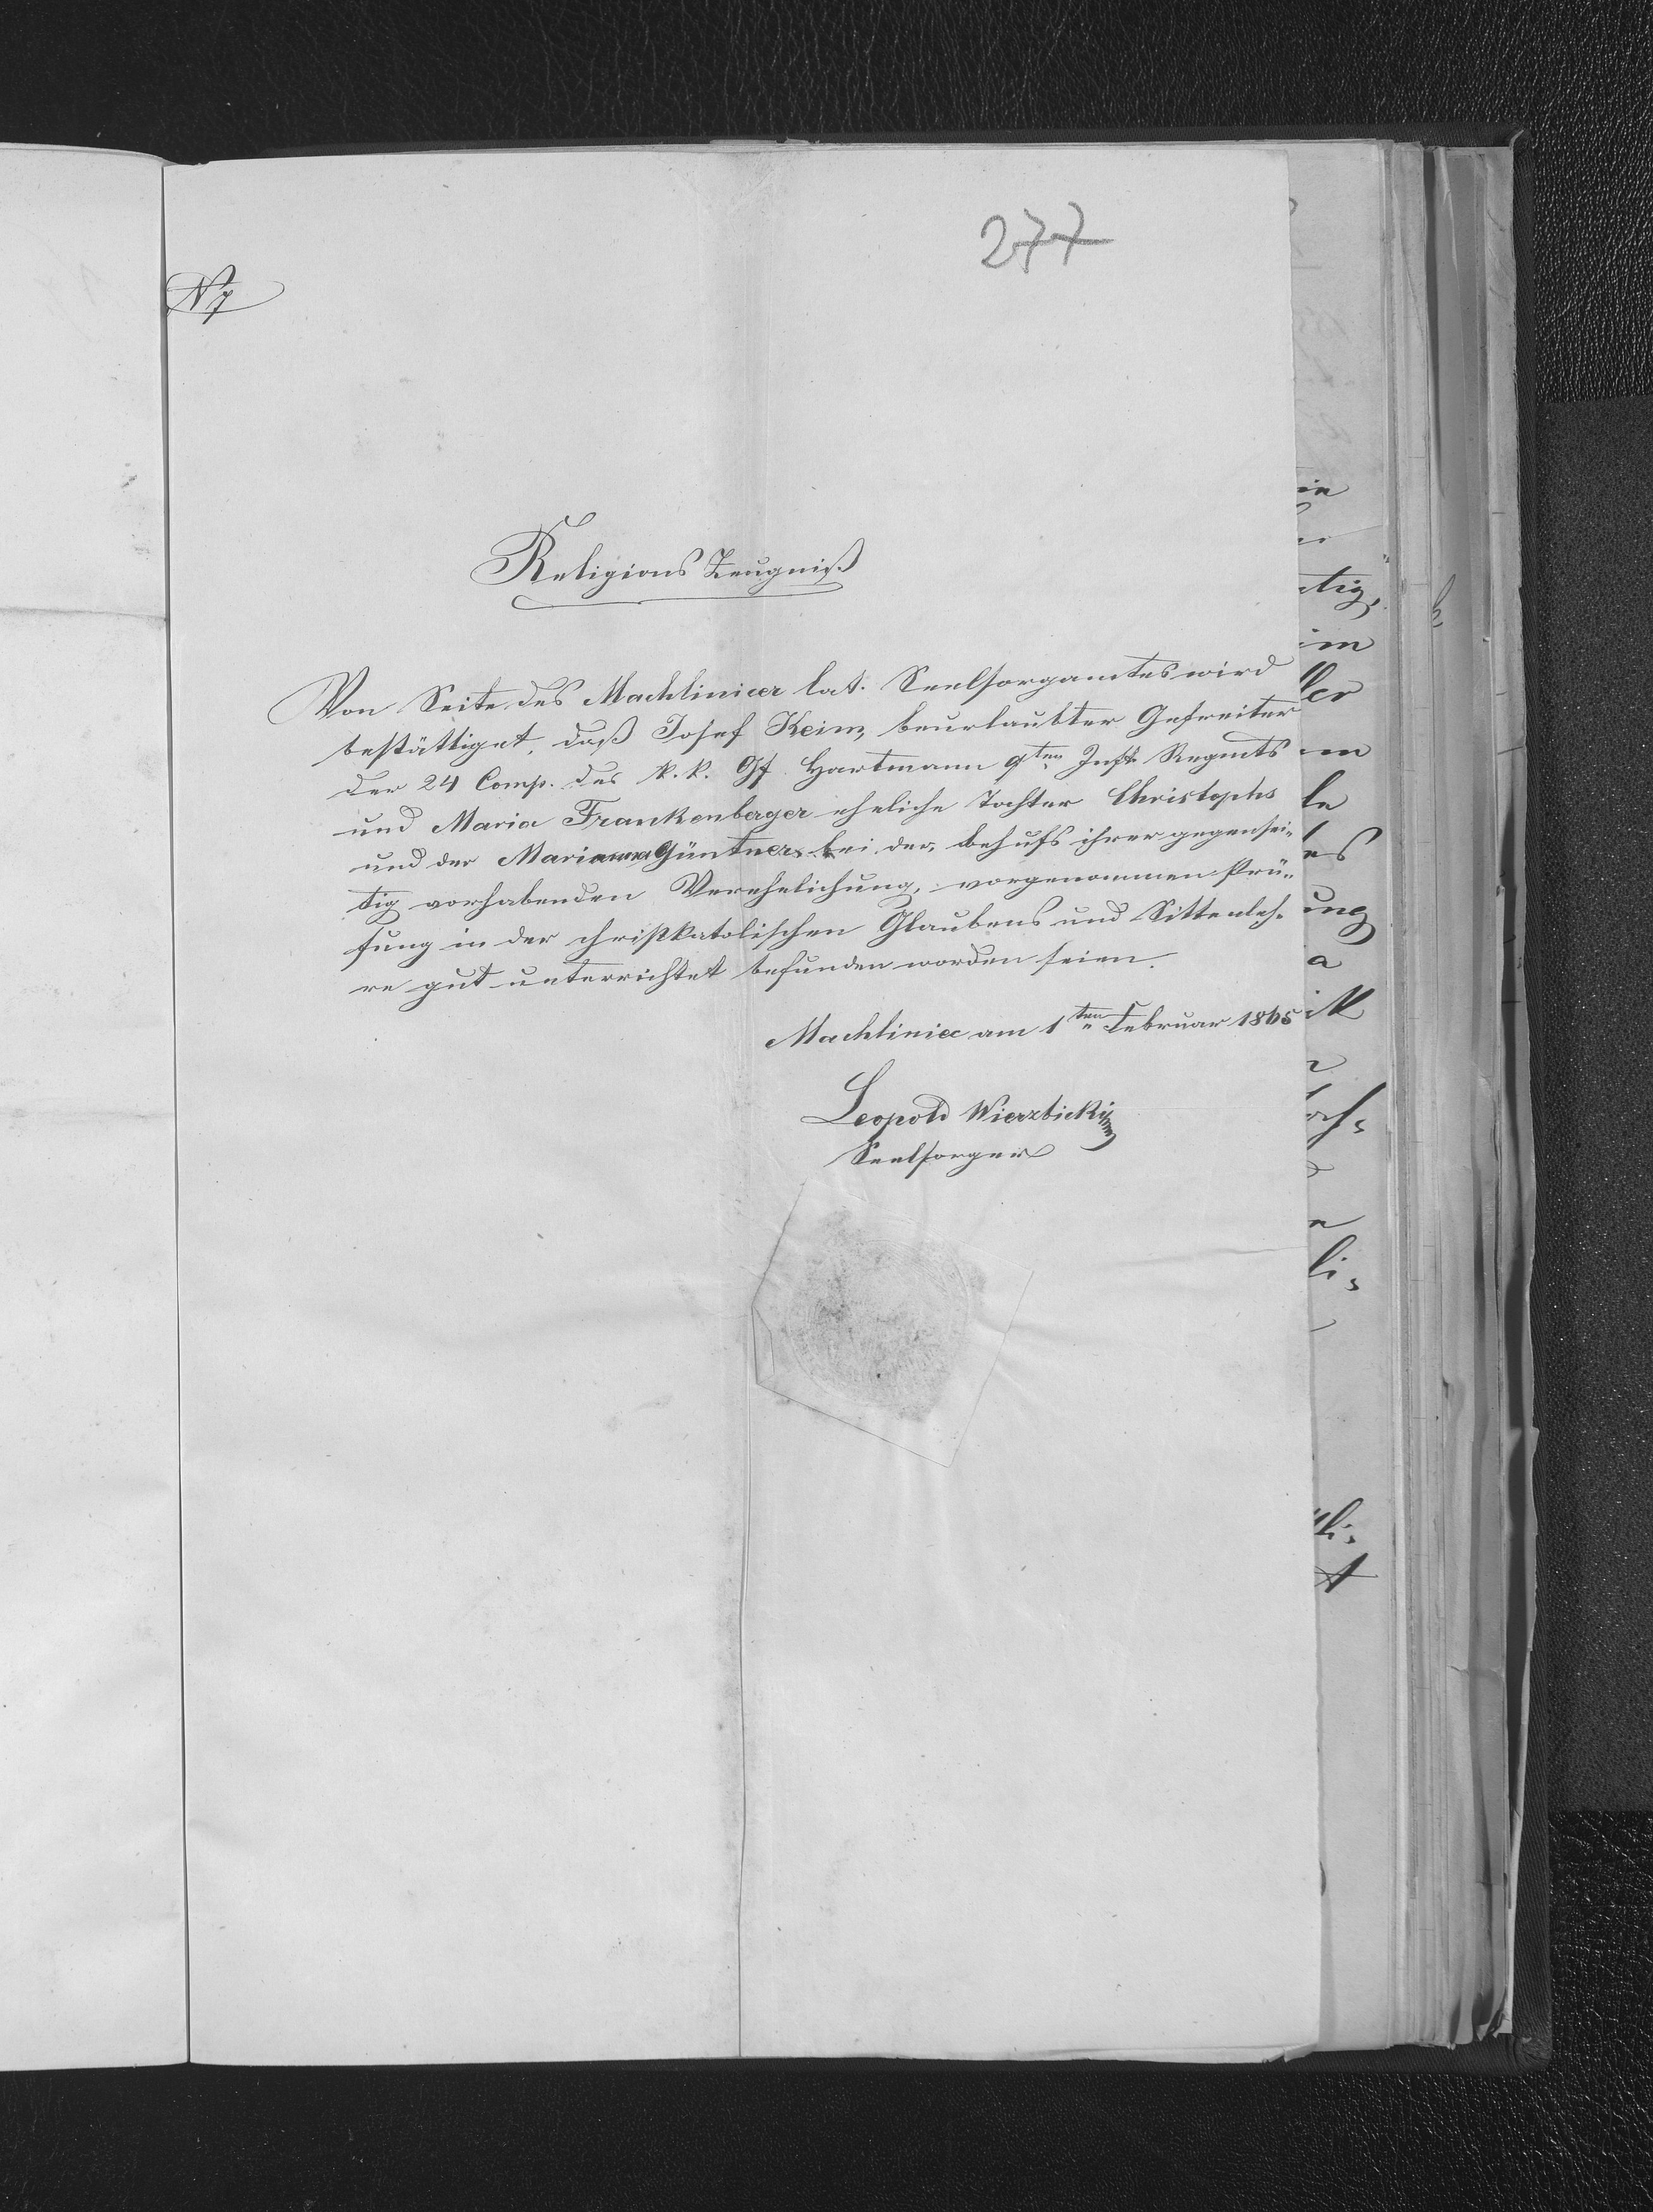 277
N 7
Religions Zeugniß
Von Seite des Machliniecer lat. Seelsorgamtes wird
bestättiget, daß Josef Keim, beurlaubter Gefreiter
der 24 Comp. des k. k. Gf. Hartmann 9ten Inft. Regmts
und Maria Frankenberger eheliche Tochter Christophs
und der Marianna Güntner bei der, behufs ihrer gegensei-
tig vorhabenden Verehelichung, vorgenommen Prü-
fung in der christkatolischen Glaubens und Sittenleh-
re gut unterrichtet befunden worden seien.
Machliniec am 1ten Februar 1865
Leopold Wierzbicki
Seelsorger